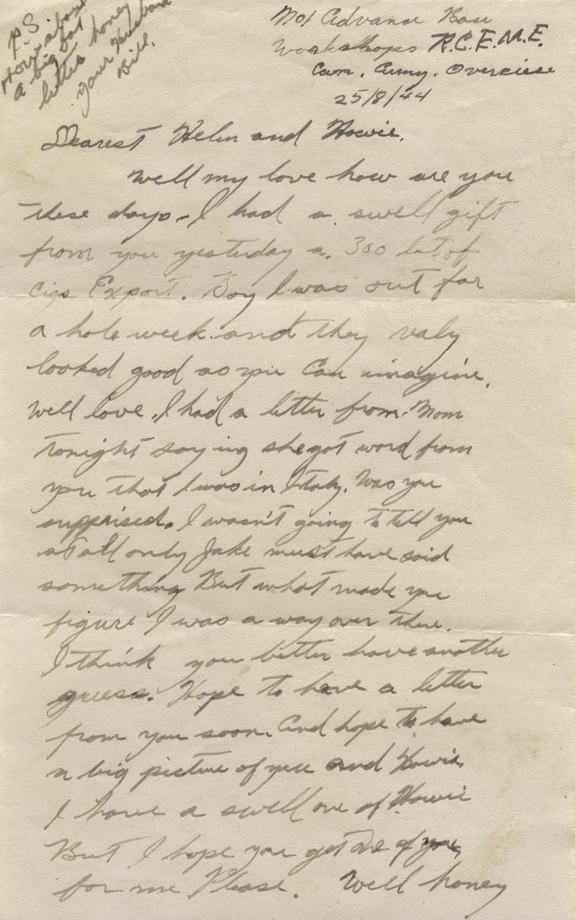 P.S.
How about
a big fat
letter honey
your Husband
Bill.
No1 Advance Base
Workshops R.C.E.M.E.
Can. Army. Overciese
25/8/44
Dearest Helen and Howie.
Well my love how are you
these days. I had a swell gift
from you yesterday a. 300 lot of
Cigs Export. Boy I was out for
a hole week. and they
looked good as you can imagine.
Well love. I had a letter from Mom
tonight saying she got word from
you that I was in Italy. Was you
supprised. I wasn't going to tell you
at all only Jake must have said
something But what made you
figure I was a way over there.
I think you better have another
guess. Hope to have a letter
from you soon. And hope to have
a big picture of you and Howie.
I have a swell one of Howie
But I hope you get one of you
for me Please. Well honey